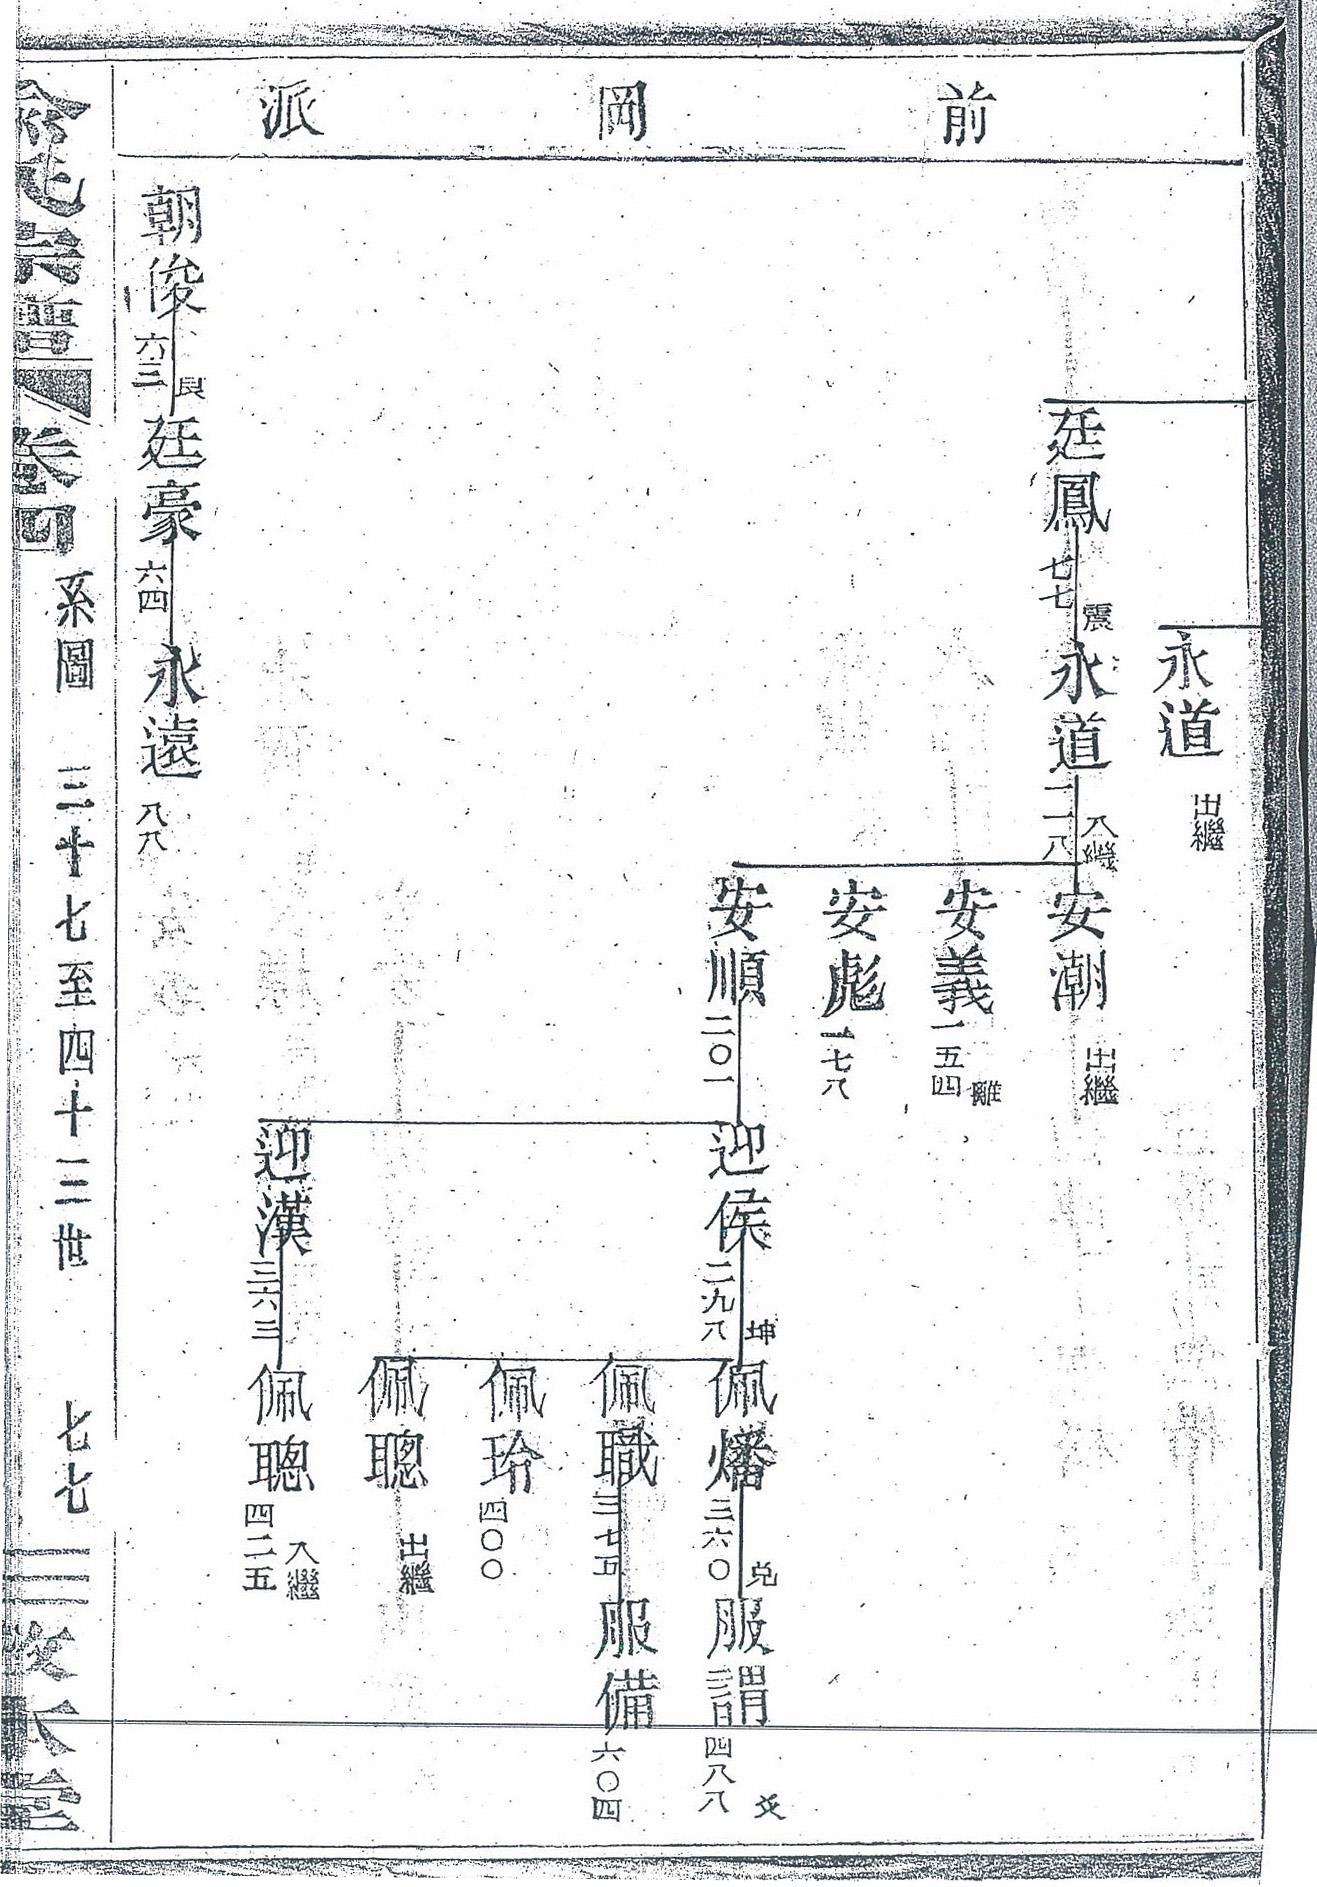 前岡派
永道 出繼
廷鳳 七七 震
永道 一一八 入繼
安潮 出繼
安義 一五四 離
安彪 一七八
安順 二〇一
迎侯 二九八 坤
佩燔 三六〇 兌
服謂 四八八 爻
佩職 三七五
服備 六〇四
佩玲 四〇〇
佩聰 出繼
迎漢 三六三
佩聰 四二五 入繼
朝俊 六三 艮
廷豪 六四
永遠 八八
俞氏宗譜 卷四 系圖 三十七至四十二世 七七